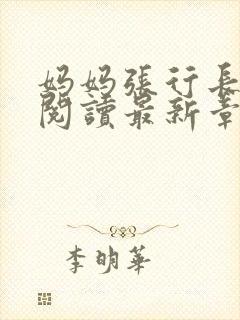 妈妈張行長
閱讀最新章
李明華